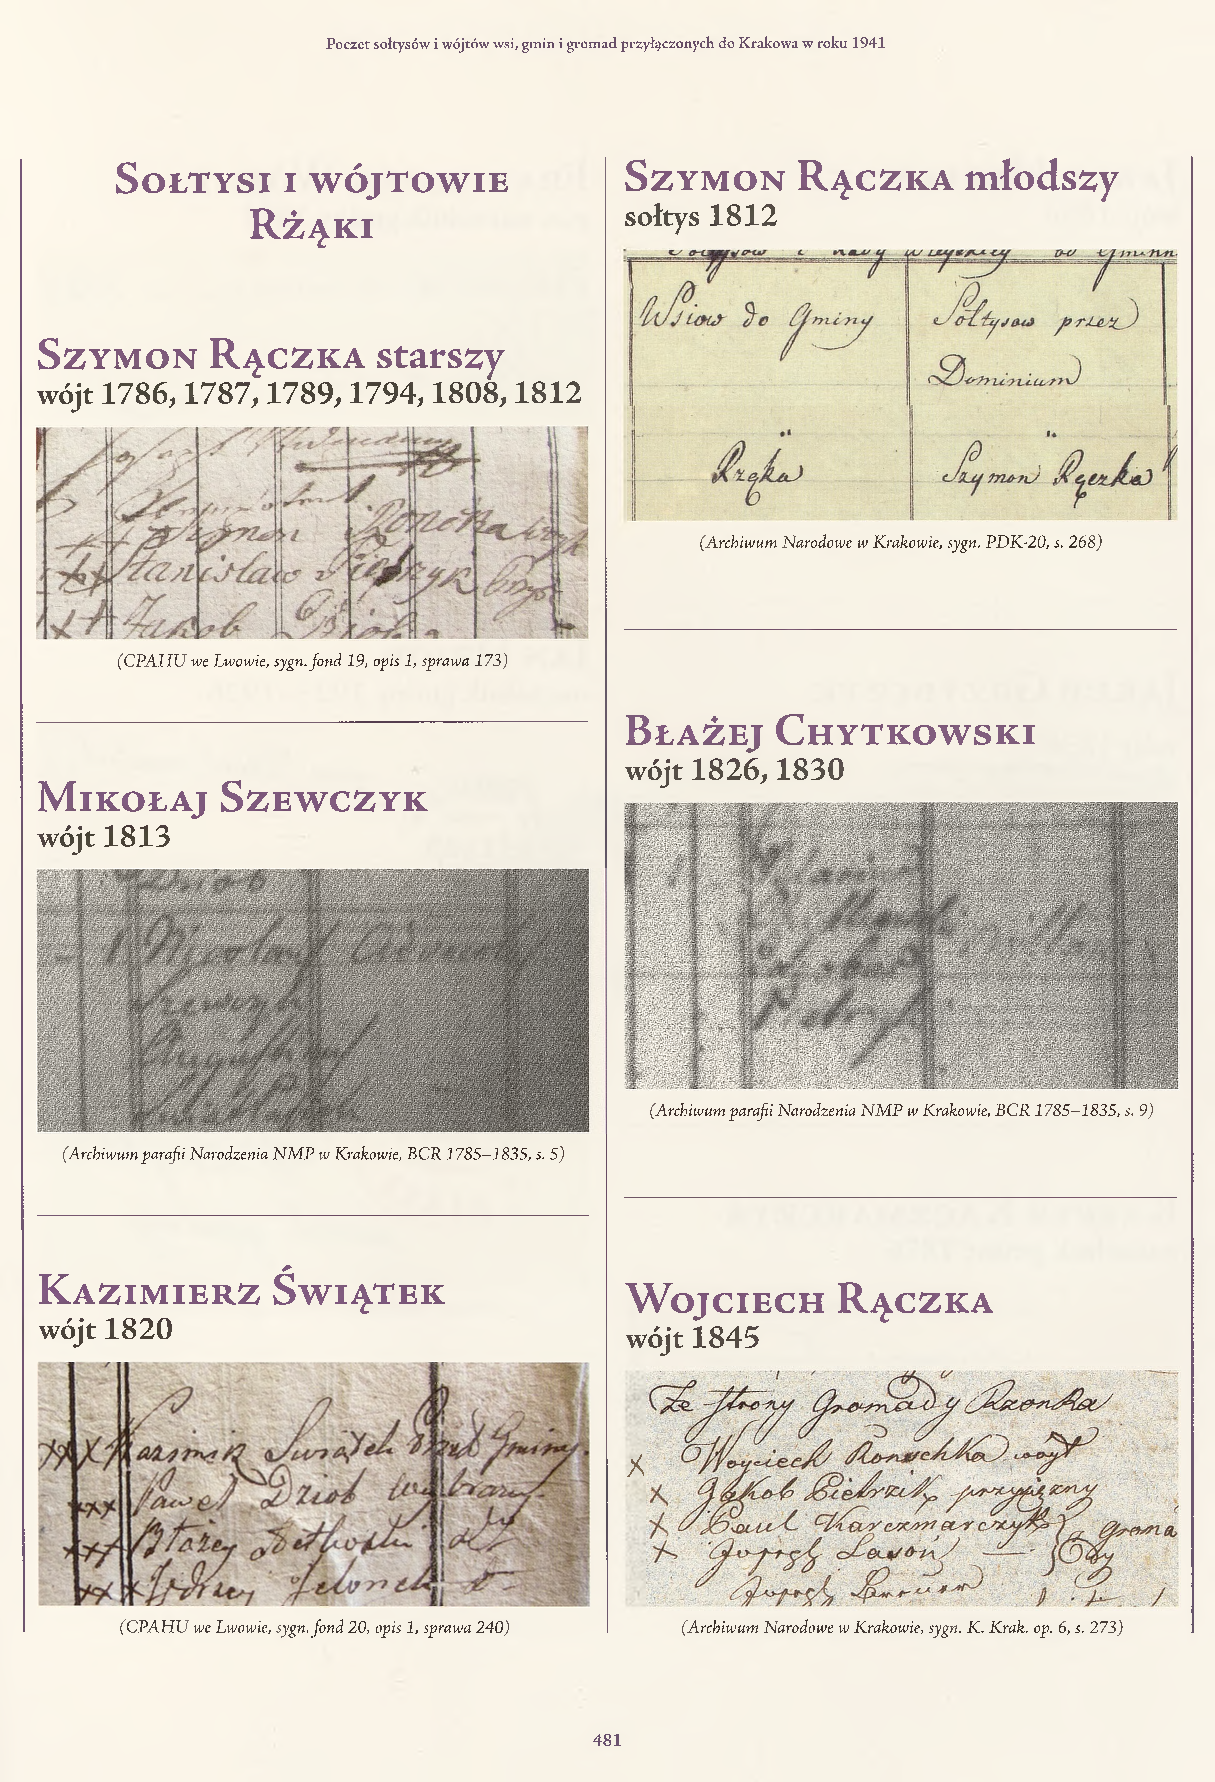 Poczet sołtysów i wójtów wsi, gmin i gromad przyłączonych do Krakowa w roku 1941
Sołtysi i wójtowie
Rżąki
Szymon Rączka starszy
wójt 1786, 1787, 1789, 1794, 1808, 1812
Szymon
Stanisław
Jakob
(CPAHU we Lwowie, sygn. fond 19, opis 1, sprawa 173)
Mikołaj Szewczyk
wójt 1813
Szewczyk
(Archiwum parafii Narodzenia NMP w Krakowie, BCR 1785–1835, s. 5)
Kazimierz Świątek
wójt 1820
Paweł Dziob
(CPAHU we Lwowie, sygn. fond 20, opis 1, sprawa 240)
Szymon Rączka młodszy
sołtys 1812
Wsiow do Gminy Sołtysow przez
Dominium
Rząka Szymon Rączka
(Archiwum Narodowe w Krakowie, sygn. PDK-20, s. 268)
Błażej Chytkowski
wójt 1826, 1830
(Archiwum parafii Narodzenia NMP w Krakowie, BCR 1785–1835, s. 9)
Wojciech Rączka
wójt 1845
Ze strony Gromady Rzonka
x Woyciech Ronschka woyt
x Jakob Piebrzik przysiężny
x Paul Karczmarczyk Groma
x Joseph Lason dy
Joseph
(Archiwum Narodowe w Krakowie, sygn. K. Krak. op. 6, s. 273)
481